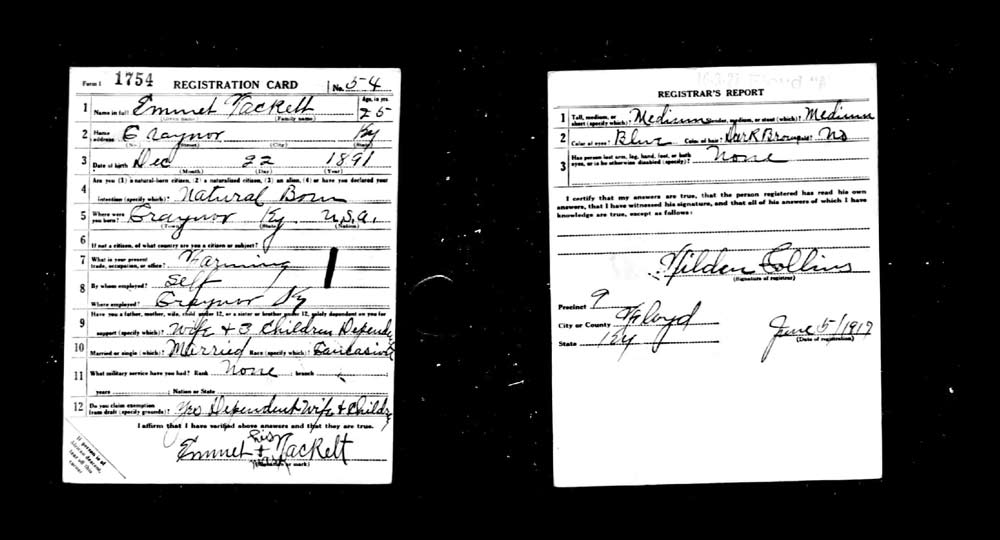 Form 1 1754 REGISTRATION CARD No. 54
1 Name in full Emmet Tackett Age, in yrs. 25
(Given name) (Family name)
2 Home address Craynor Ky
(No.) (Street) (City) (State)
3 Date of birth Dec 22 1891
(Month) (Day) (Year)
Are you (1) a natural-born citizen, (2) a naturalized citizen, (3) an alien, (4) or have you declared your
4 intention (specify which)? Natural Born
5 Where were you born? Craynor Ky U.S.A.
(Town) (State) (Nation)
6 If not a citizen, of what country are you a citizen or subject?
7 What is your present trade, occupation, or office? Farming
8 By whom employed? Self
Where employed? Craynor Ky
Have you a father, mother, wife, child under 12, or a sister or brother under 12, solely dependent on you for
9 support (specify which)? Wife + 3 Children Depend
10 Married or single (which)? Married Race (specify which)? Caucasion
11 What military service have you had? Rank None ; branch
years ; Nation or State
12 Do you claim exemption from draft (specify grounds)? Yes Dependent Wife & Childr
I affirm that I have verified above answers and that they are true.
his
Emmet + Tackett
mark
(Signature or mark)
If person is of African descent, tear off this corner
REGISTRAR'S REPORT
1 Tall, medium, or short (specify which)? Medium Slender, medium, or stout (which)? Medium
2 Color of eyes? Blue Color of hair? Dark Brown Bald? No
3 Has person lost arm, leg, hand, foot, or both eyes, or is he otherwise disabled (specify)? None
I certify that my answers are true, that the person registered has read his own
answers, that I have witnessed his signature, and that all of his answers of which I have
knowledge are true, except as follows:
Tilden Collins
(Signature of registrar)
Precinct 9
City or County Floyd
State Ky
June 5/1917
(Date of registration)